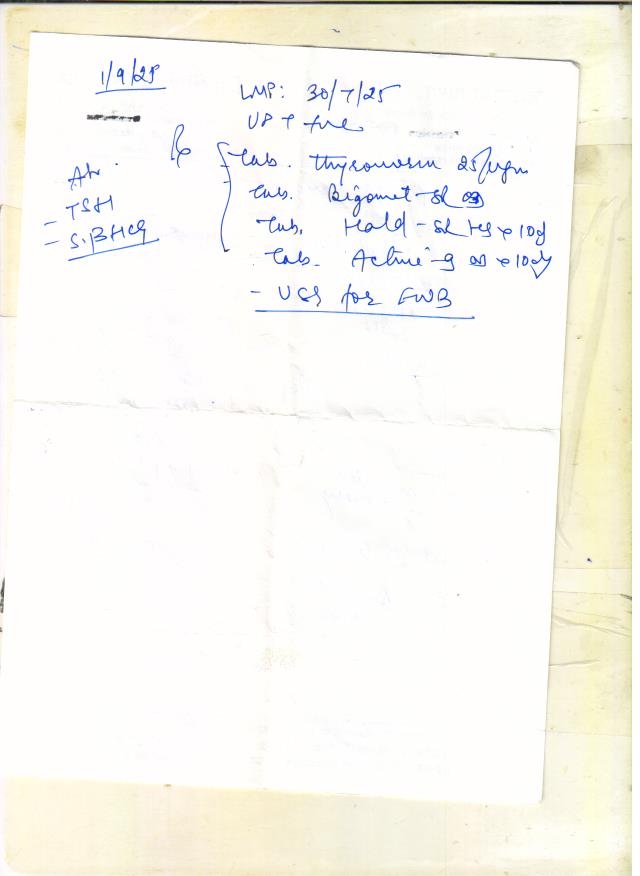 1/9/25
LMP: 30/7/25
UPT +ve
Rx
Tab. Thyronorm 25/ugm
Adv.
Tab. Bigomet-SR OD
- TSH
Tab. Hald-SR HS x 10d
- S.BHCG
Tab. Active-9 OD x 10dy
- USG for FWB